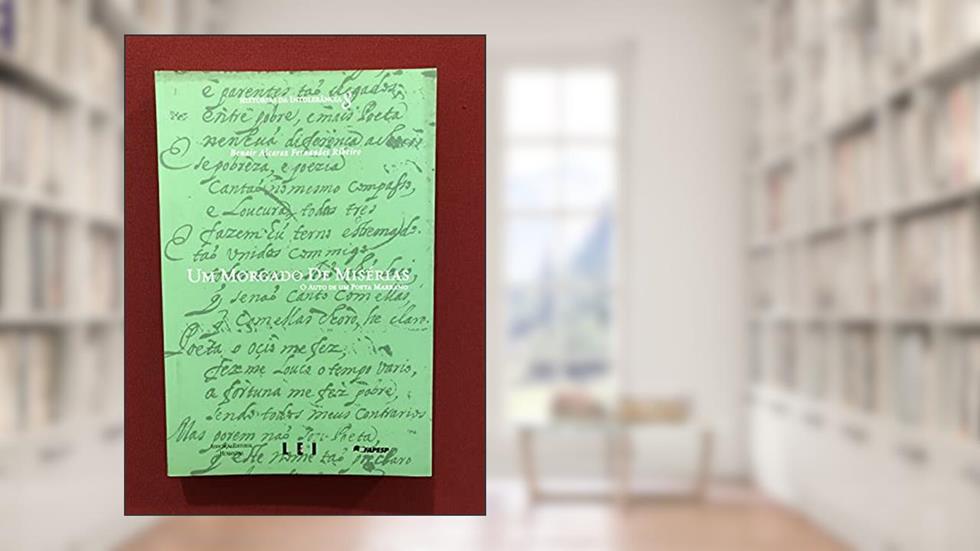 e parentes taõ chegados,
HISTÓRIAS DA INTOLERÂNCIA 8
Entre pobre, e mais Poeta
nenhuã diferença
Benair Alcaraz Fernandes Ribeiro
se pobreza, e poezia
Cantaõ no mesmo Compasso,
e Loucura, todas tres
fazem eú terno
taõ Unidas Commigo
UM MORGADO DE MISÉRIAS
O AUTO DE UM POETA MARRANO
q̃ senaõ Canto Com ellas,
q̃ Com ellas Choro, he claro.
Poeta o me fez,
fez me Louco o tempo vario,
a fortuna me fez pobre,
sendo todos meus Contrarios
Mas porem naõ sou Poeta,
ASSOCIAÇÃO EDITORIAL
HUMANITAS
LEI
FAPESP
q̃ este nome taõ preclaro